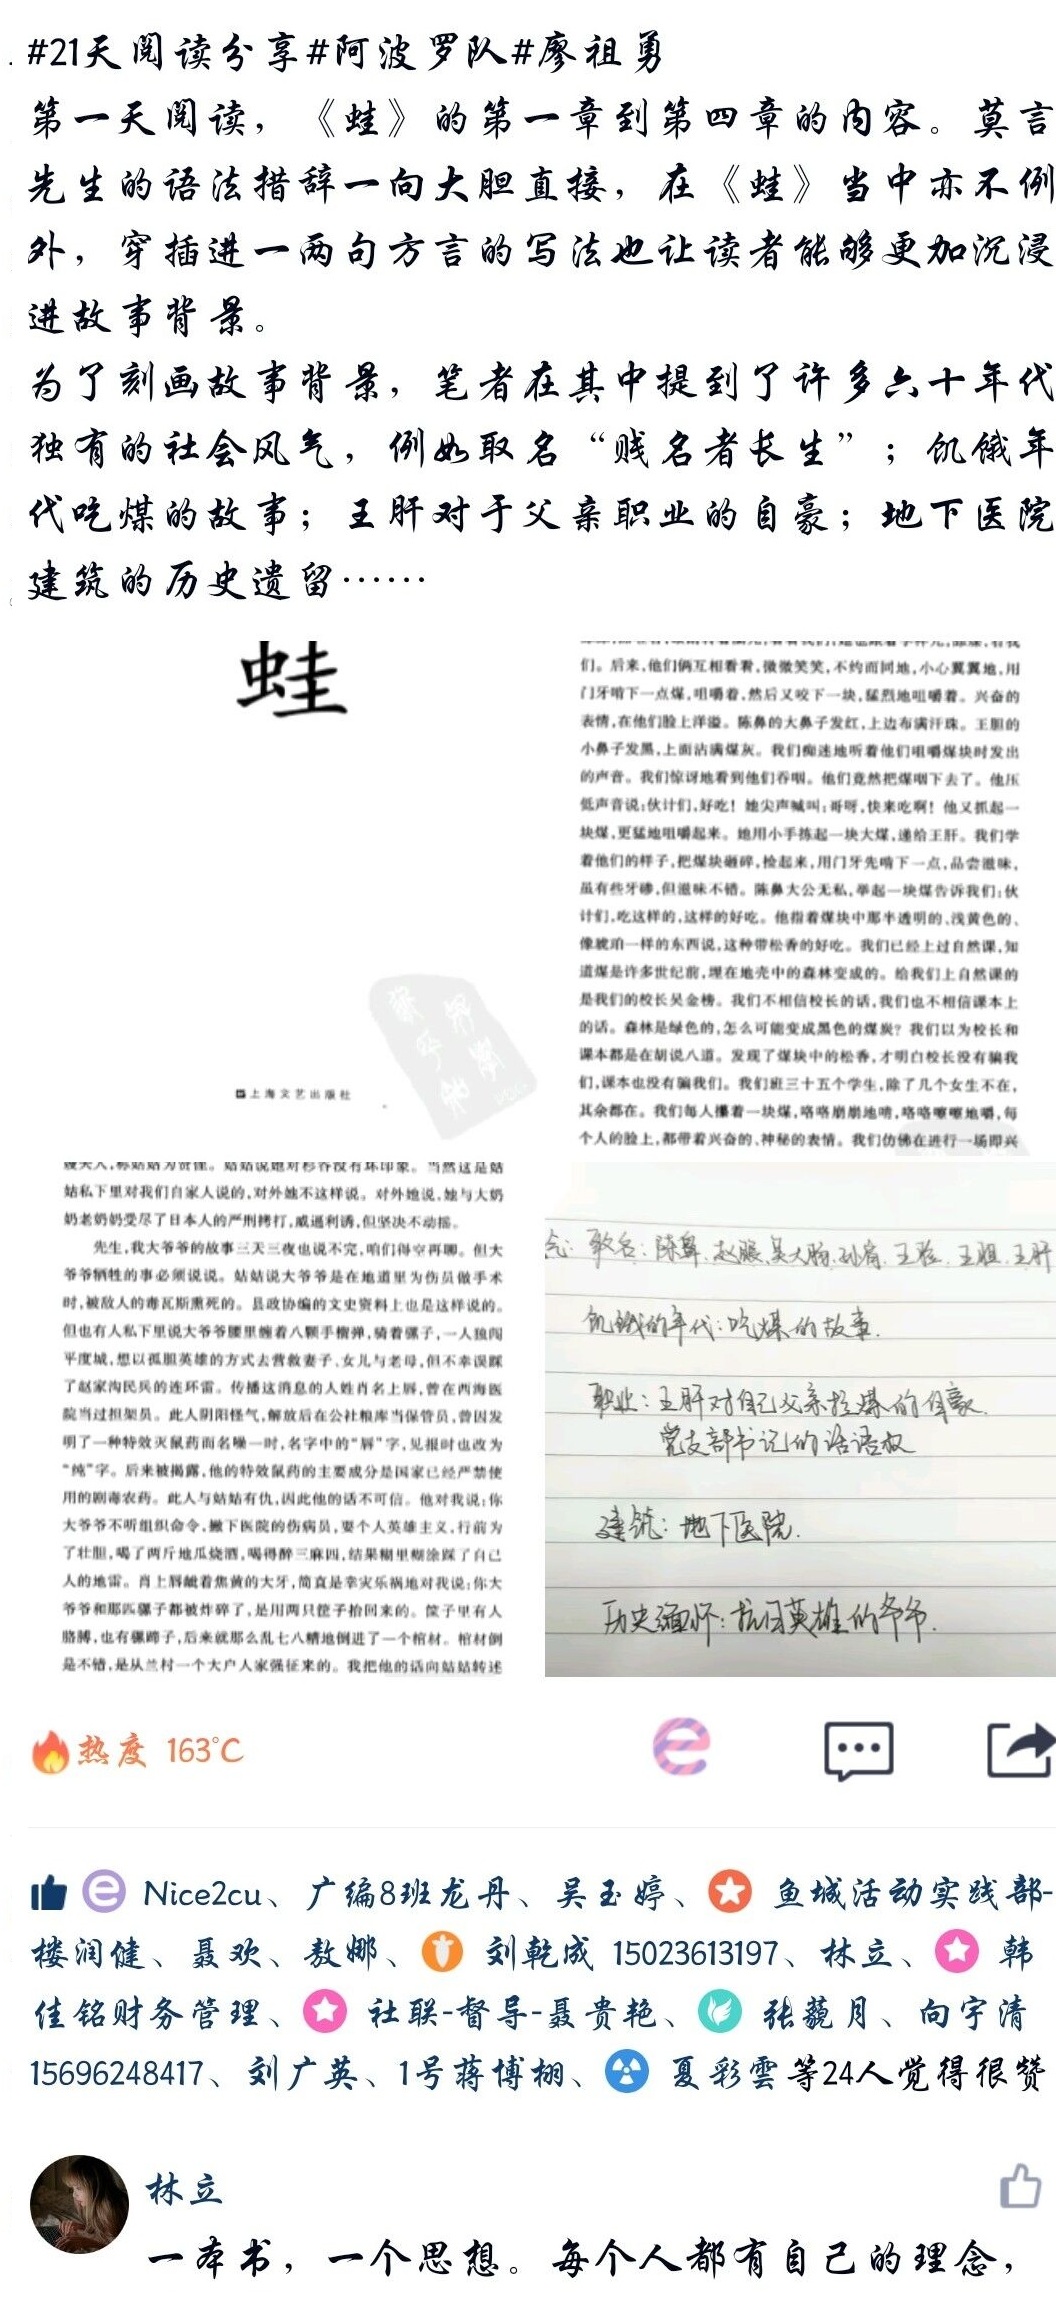 #21天阅读分享#阿波罗队#廖祖勇
第一天阅读，《蛙》的第一章到第四章的内容。莫言
先生的语法措辞一向大胆直接，在《蛙》当中亦不例
外，穿插进一两句方言的写法也让读者能够更加沉浸
进故事背景。
为了刻画故事背景，笔者在其中提到了许多六十年代
独有的社会风气，例如取名“贱名者长生”；饥饿年
代吃煤的故事；王肝对于父亲职业的自豪；地下医院
建筑的历史遗留……
蛙
上海文艺出版社
们。后来，他们俩互相看看，微微笑笑，不约而同地，小心翼翼地，用
门牙啃下一点煤，咀嚼着，然后又咬下一块，猛烈地咀嚼着。兴奋的
表情，在他们脸上洋溢。陈鼻的大鼻子发红，上边布满汗珠。王胆的
小鼻子发黑，上面沾满煤灰。我们痴迷地听着他们咀嚼煤块时发出
的声音。我们惊讶地看到他们吞咽。他们竟然把煤咽下去了。他压
低声音说：伙计们，好吃！她尖声喊叫：哥呀，快来吃啊！他又抓起一
块煤，更猛地咀嚼起来。她用小手拣起一块大煤，递给王肝。我们学
着他们的样子，把煤块砸碎，捡起来，用门牙先啃下一点，品尝滋味，
虽有些牙碜，但滋味不错。陈鼻大公无私，举起一块煤告诉我们：伙
计们，吃这样的，这样的好吃。他指着煤块中那半透明的、浅黄色的、
像琥珀一样的东西说，这种带松香的好吃。我们已经上过自然课，知
道煤是许多世纪前，埋在地壳中的森林变成的。给我们上自然课的
是我们的校长吴金榜。我们不相信校长的话，我们也不相信课本上
的话。森林是绿色的，怎么可能变成黑色的煤炭？我们以为校长和
课本都是在胡说八道。发现了煤块中的松香，才明白校长没有骗我
们，课本也没有骗我们。我们班三十五个学生，除了几个女生不在，
其余都在。我们每人攥着一块煤，咯咯崩崩地啃，咯咯嚓嚓地嚼，每
个人的脸上，都带着兴奋的、神秘的表情。我们仿佛在进行一场即兴
姑私下里对我们自家人说的，对外她不这样说。对外她说，她与大奶
奶老奶奶受尽了日本人的严刑拷打，威逼利诱，但坚决不动摇。
先生，我大爷爷的故事三天三夜也说不完，咱们得空再聊。但大
爷爷牺牲的事必须说说。姑姑说大爷爷是在地道里为伤员做手术
时，被敌人的毒瓦斯熏死的。县政协编的文史资料上也是这样说的。
但也有人私下里说大爷爷腰里缠着八颗手榴弹，骑着骡子，一人独闯
平度城，想以孤胆英雄的方式去营救妻子、女儿与老母，但不幸误踩
了赵家沟民兵的连环雷。传播这消息的人姓肖名上唇，曾在西海医
院当过担架员。此人阴阳怪气，解放后在公社粮库当保管员，曾因发
明了一种特效灭鼠药而名噪一时，名字中的“唇”字，见报时也改为
“纯”字。后来被揭露，他的特效鼠药的主要成分是国家已经严禁使
用的剧毒农药。此人与姑姑有仇，因此他的话不可信。他对我说：你
大爷爷不听组织命令，撇下医院的伤病员，耍个人英雄主义，行前为
了壮胆，喝了两斤地瓜烧酒，喝得醉三麻四，结果糊里糊涂踩了自己
人的地雷。肖上唇龇着焦黄的大牙，简直是幸灾乐祸地对我说：你大
爷爷和那匹骡子都被炸碎了，是用两只筐子抬回来的。筐子里有人
胳膊，也有骡蹄子，后来就那么乱七八糟地倒进了一个棺材。棺材倒
是不错，是从兰村一个大户人家强征来的。我把他的话向姑姑转述
陈鼻、赵眼、吴大肠、孙肩、王脸、王胆、王肝
饥饿的年代：吃煤的故事.
职业：王肝对自己父亲拉煤的自豪.
党支部书记的话语权
建筑：地下医院.
历史缅怀：抗日英雄的爷爷.
热度 163°C
Nice2cu、广编8班龙丹、吴玉婷、鱼城活动实践部-
楼润健、聂欢、敖娜、刘乾成 15023613197、林立、韩
佳铭财务管理、社联-督导-聂贵艳、张藐月、向宇清
15696248417、刘广英、1号蒋博栩、夏彩雲等24人觉得很赞
林立
一本书，一个思想。每个人都有自己的理念，